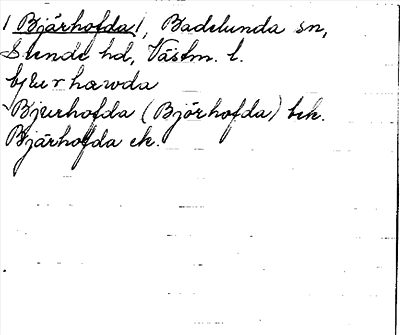 /Bjärhofda/, Badelunda sn,
Siende hd, Västm. l.
bjurhawda
Bjurhofda (Björhofda) bek.
Bjärhofda ek.